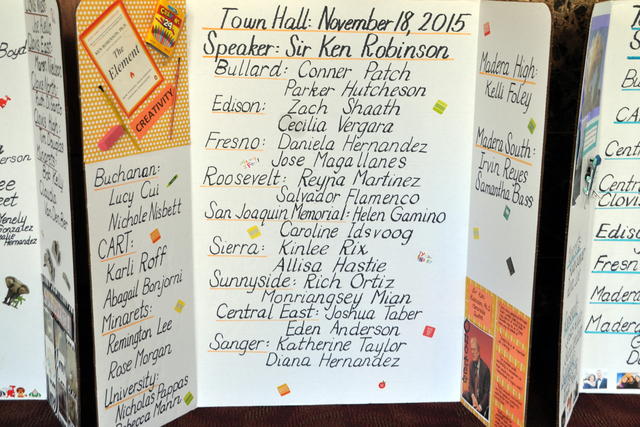 Boyd
The
Element
CRAYOLA
24
CREATIVITY
Buchanan:
Lucy Cui
Nichole Nisbett
CART:
Karli Roff
Abagail Bonjorni
Minarets:
Remington Lee
Rose Morgan
University:
Nicholas Pappas
Rebecca Mann
Town Hall: November 18, 2015
Speaker: Sir Ken Robinson
Bullard: Conner Patch
Parker Hutcheson
Edison: Zach Shaath
Cecilia Vergara
Fresno: Daniela Hernandez
Jose Magallanes
Roosevelt: Reyna Martinez
Salvador Flamenco
San Joaquin Memorial: Helen Gamino
Caroline Idsvoog
Sierra: Kinlee Rix
Allisa Hastie
Sunnyside: Rich Ortiz
Monriangsey Mian
Central East: Joshua Taber
Eden Anderson
Sanger: Katherine Taylor
Diana Hernandez
Madera High:
Kelli Foley
Madera South:
Irvin Reyes
Samantha Bass
CA
Cent
Centr
Clovis
Ediso
Fresn
Madera
Madera